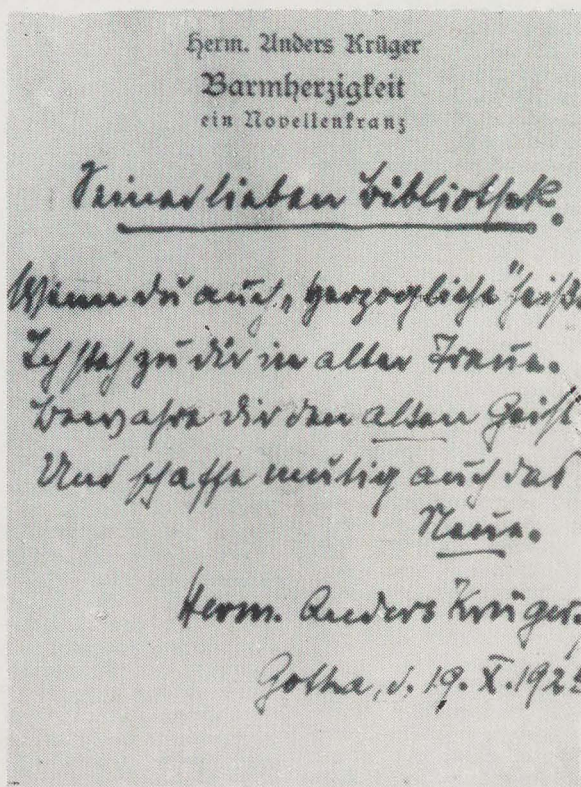 Herm. Anders Krüger
Barmherzigkeit
ein Novellenkranz
Seiner lieben Bibliothek.
Wenn du auch „Herzogliche“ heißt
Ich steh zu dir in alter Treue.
Bewahre dir den alten Geist
Und schaffe mutig auch das
Neue.
Herm. Anders Krüger.
Gotha, d. 19. X. 1925